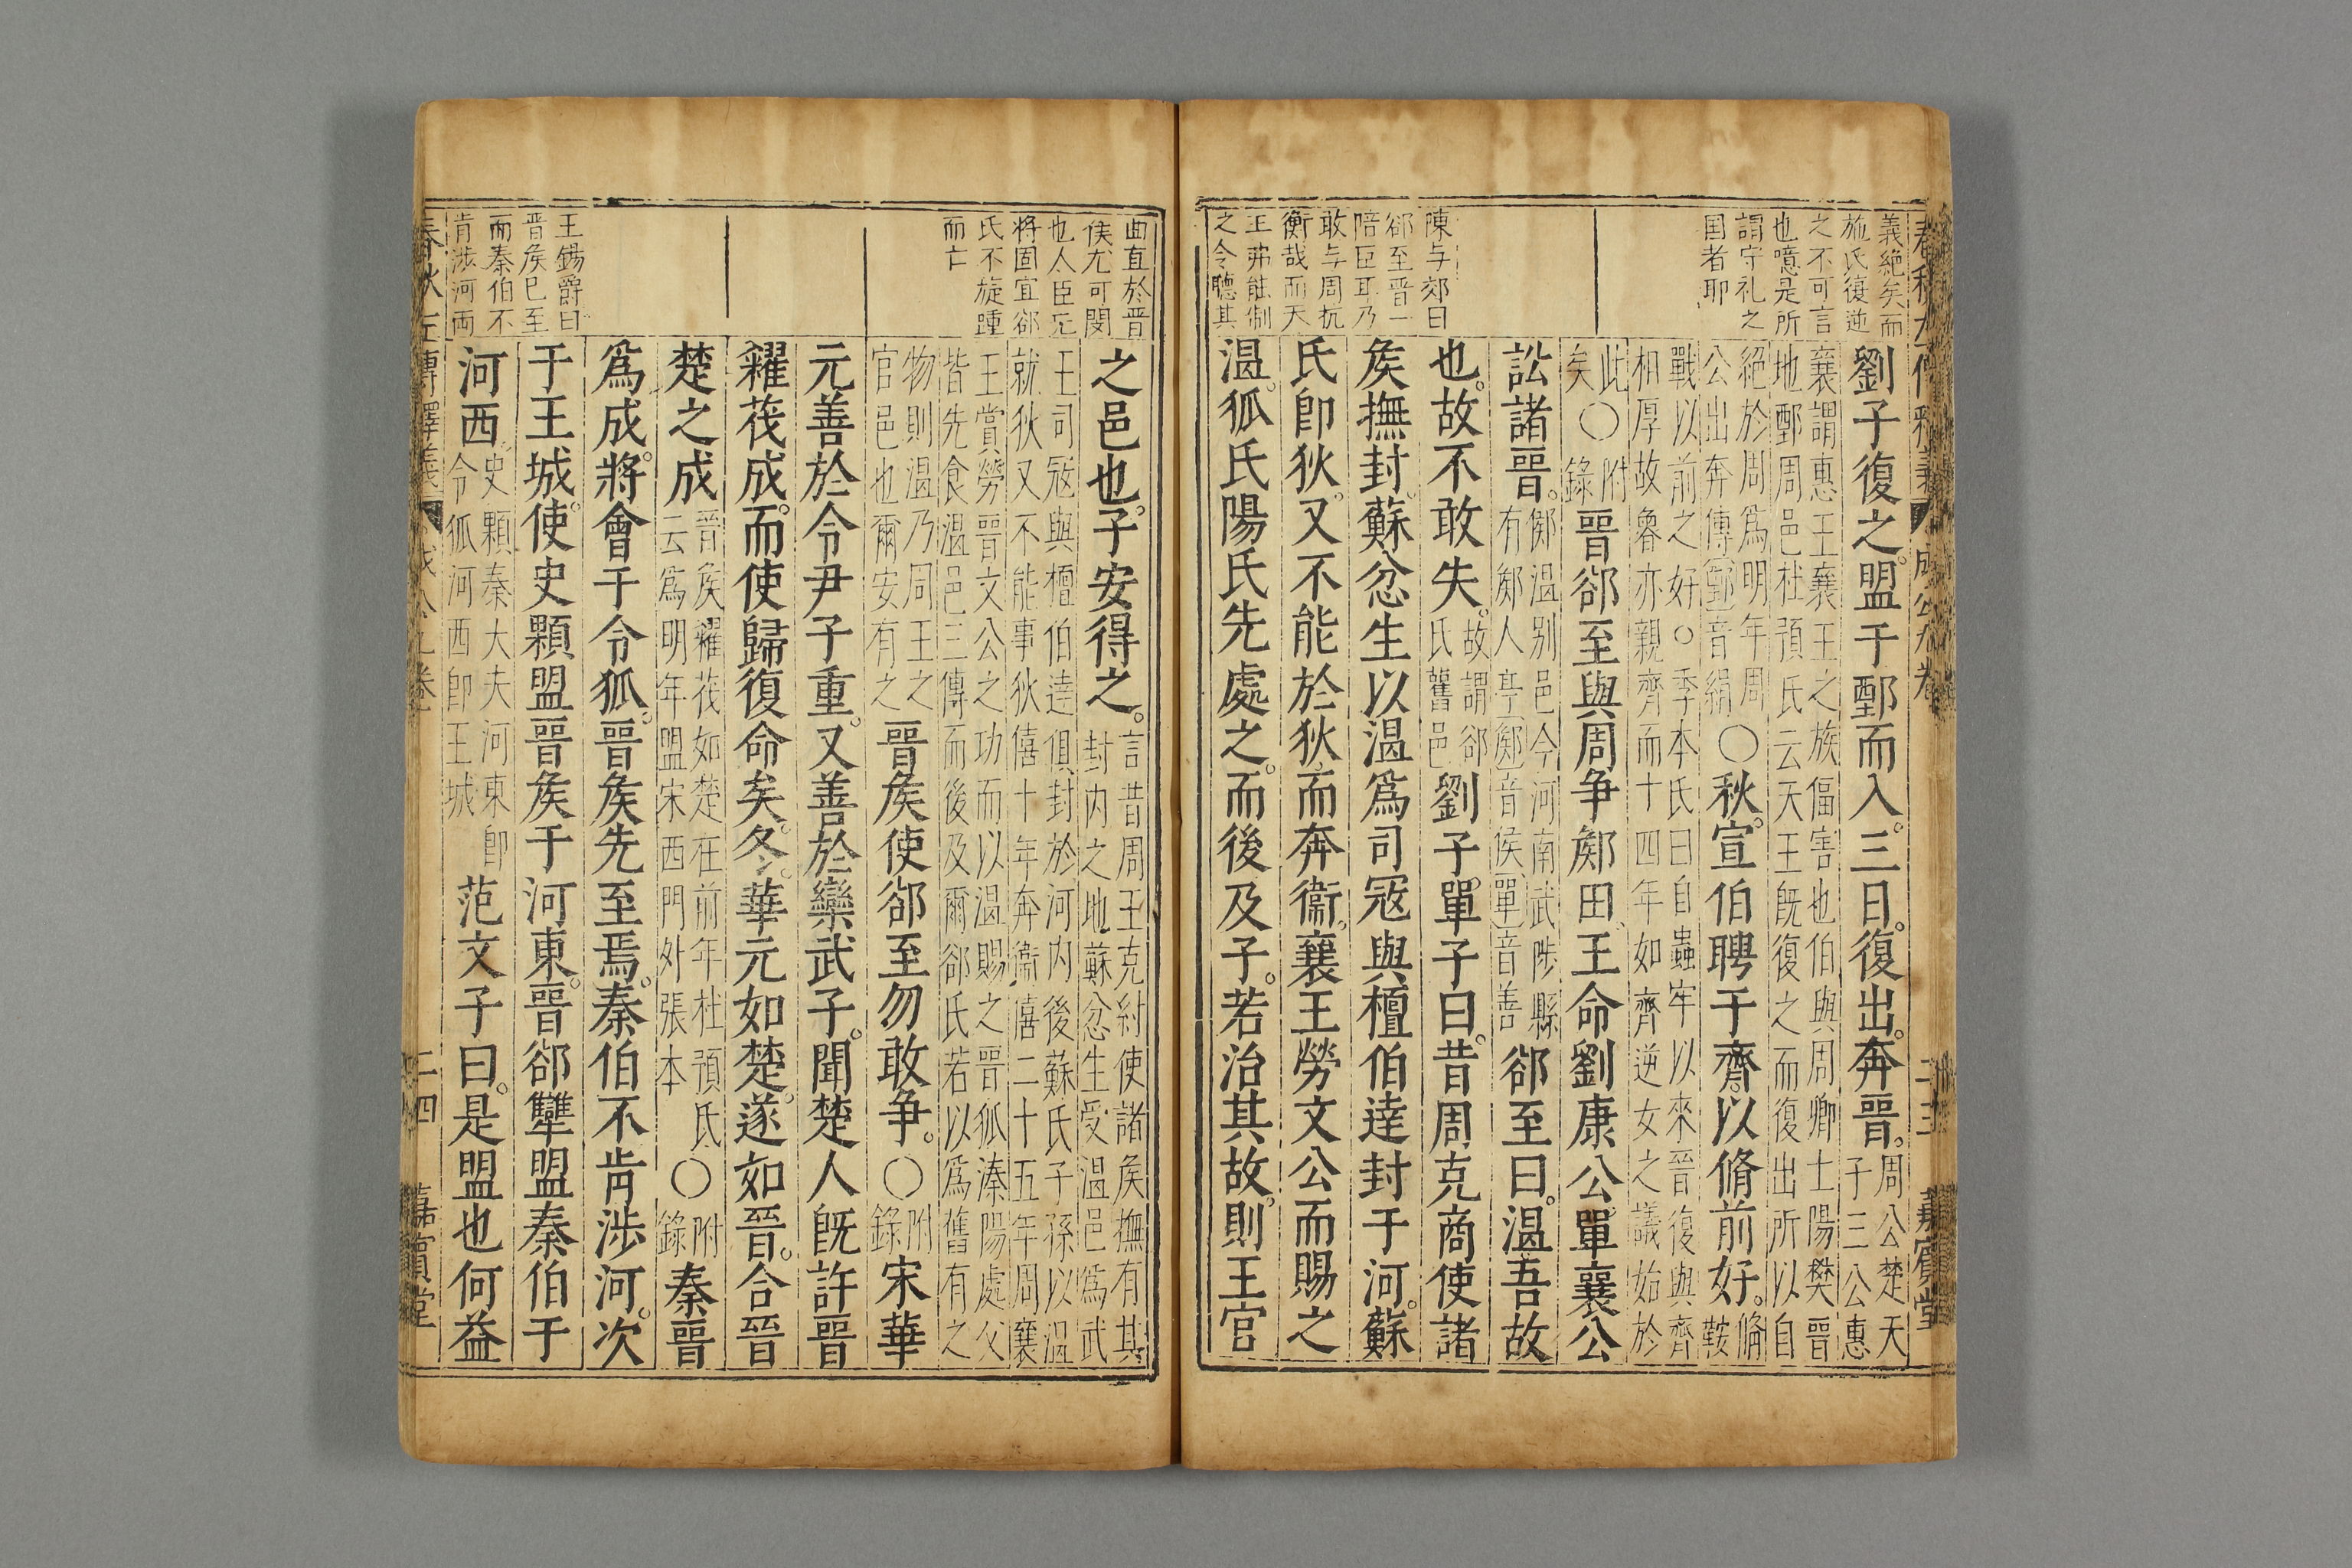 春秋左傳釋義 成公九卷 二十三 嘉賓堂
義絕矣而
施氏復逆
之不可言
也噫是所
謂守礼之
国者耶
陳与郊曰
郤至晋一
陪臣耳乃
敢与周抗
衡哉而天
王弗能制
之令聽其
劉子復之盟于鄄而入三日復出奔晉周公楚天子三公惠
襄謂惠王襄王之族偪害也伯與周卿士陽樊晉地鄄周邑杜預氏云天王既復之而復出所以自
絕於周爲明年周公出奔傳鄄音絹〇秋宣伯聘于齊以脩前好脩鞍
戰以前之好〇季本氏曰自蟲牢以來晉復與齊相厚故魯亦親齊而十四年如齊逆女之議始於
此矣〇附錄晉郤至與周争鄇田王命劉康公單襄公
訟諸晉鄇溫別邑今河南武陟縣有鄇人亭鄇音侯單音善郤至曰溫吾故
也故不敢失故謂郤氏舊邑劉子單子曰昔周克商使諸
矦撫封蘇忿生以溫爲司寇與檀伯達封于河蘇
氏卽狄又不能於狄而奔衞襄王勞文公而賜之
溫狐氏陽氏先處之而後及子若治其故則王官
曲直於晋
侯尤可閔
也人臣无
將固宜郤
氏不旋踵
而亡
王錫爵曰
晋矦已至
而秦伯不
肯涉河两
之邑也子安得之言昔周王克紂使諸矦撫有其封内之地蘇忿生受溫邑爲武
王司寇與檀伯達俱封於河内後蘇氏子孫以溫就狄又不能事狄僖十年奔衞僖二十五年周襄
王賞勞晉文公之功而以溫賜之晉狐溱陽處父皆先食溫邑三傳而後及爾郤氏若以爲舊有之
物則溫乃周王之官邑也爾安有之晉矦使郤至勿敢争〇附錄宋華
元善於令尹子重又善於欒武子聞楚人旣許晉
糴茷成而使歸復命矣冬華元如楚遂如晉合晉
楚之成晉矦糴茷如楚在前年杜預氏云爲明年盟宋西門外張本〇附錄秦晉
爲成將會于令狐晉矦先至焉秦伯不肯涉河次
于王城使史顆盟晉矦于河東晉郤犫盟秦伯于
河西史顆秦大夫河東卽令狐河西卽王城范文子曰是盟也何益
春秋左傳釋義 成公九卷 二四 嘉賓堂